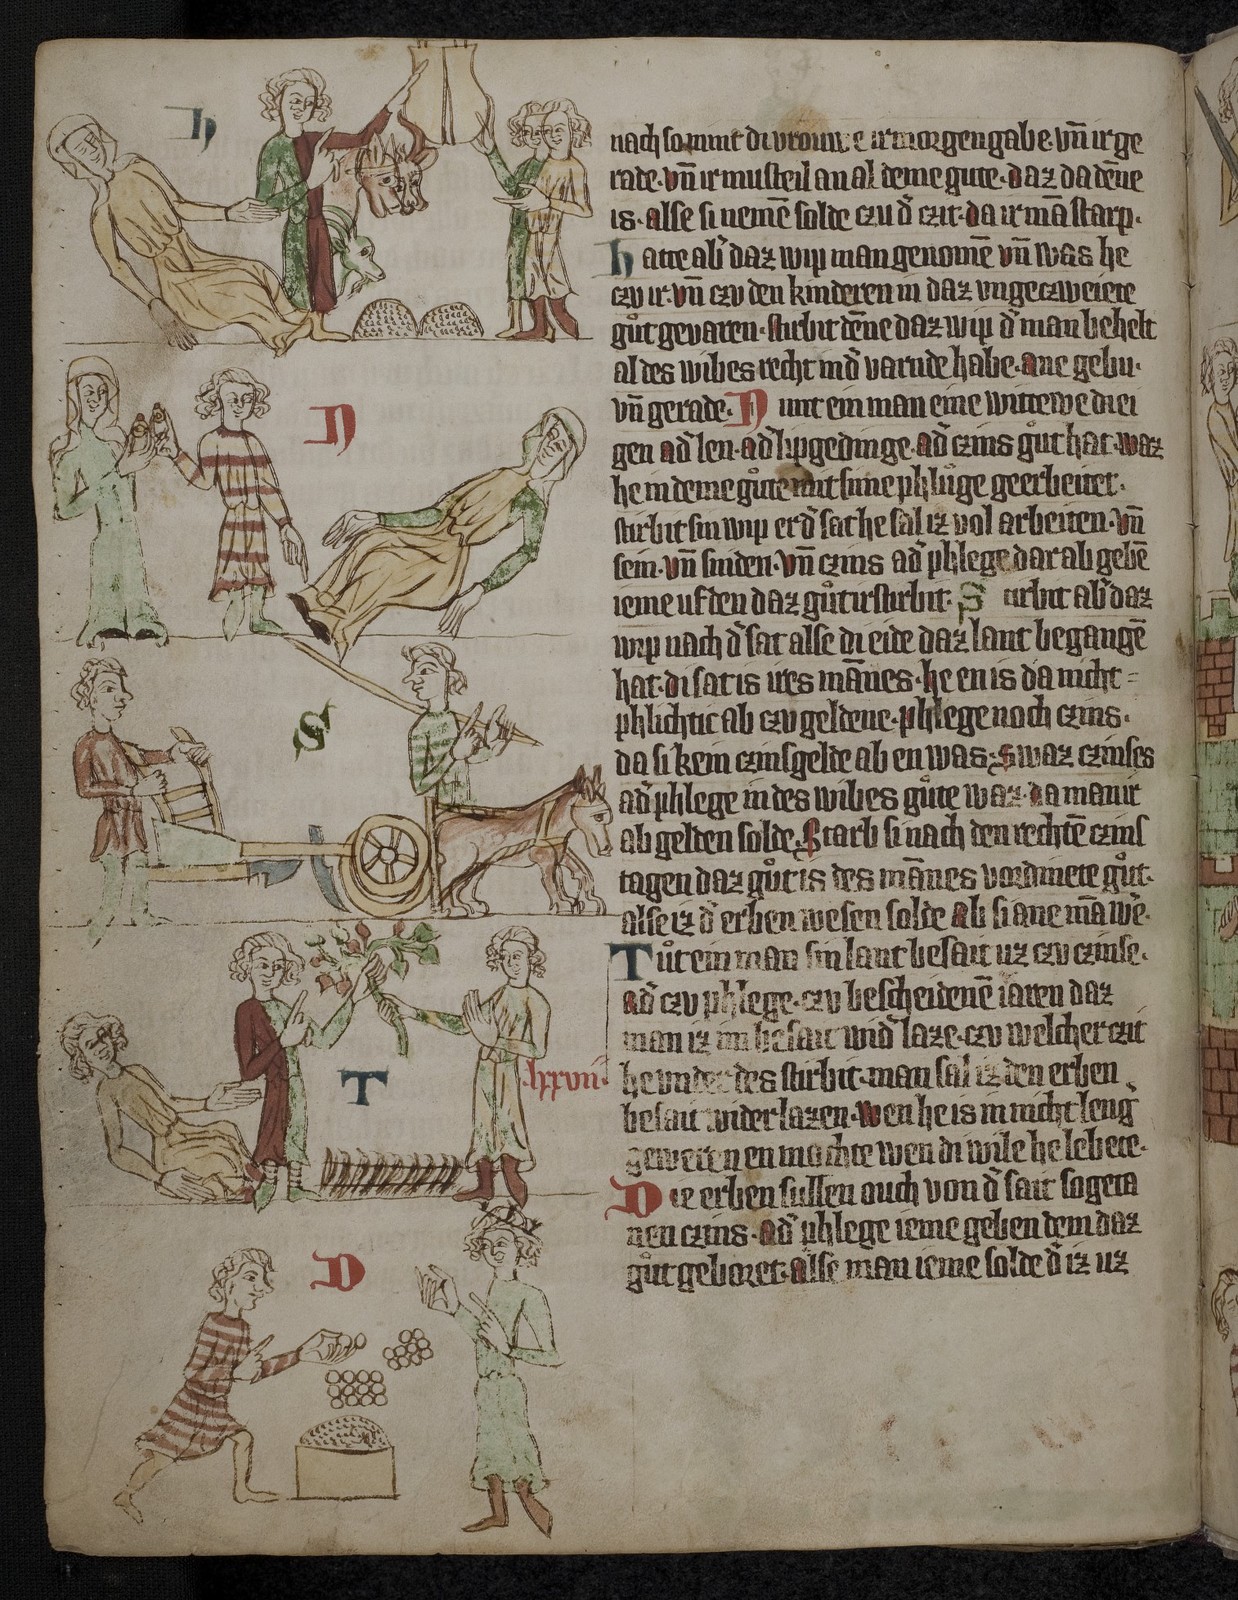 h
nach so nimt di vrouwe ir morgengabe. vn̄ ir ge
rade. vn̄ ir musteil an al deme gute. daz da dēne
is. alse si nemē solde czu d' czit. da ir mā starp.
hatte ab' daz wip man genomē vn̄ was he
czu ir. vn̄ czu den kinderen in daz ungeczweiete
gůt gevaren. stirbit dēne daz wip d' man behelt
al des wibes recht in d' varnde habe. ane gebu.
vn̄ gerade. Nimt ein man eine wittewe di ei
gen ad' len. ad' lipgedinge. ad' czins gůt hat. waz
he in deme gůte mit sime phlůge geerbeitet.
stirbit sin wip er d' sat he sal iz vol arbeiten. vn̄
sein. vn̄ sniden. vn̄ czins ad' phlege dar ab gebē
ieme uf den daz gůt irstirbit. Stirbit ab' daz
wip nach d' sat alse di eide daz lant begangē
hat. di sat is ires mānes. he en is da nicht
phlichtic ab czu geldene. phlege noch czins.
da si kein czinsgelde ab en was. Swaz czinses
ad' phlege in des wibes gůte waz. da man ir
ab gelden solde. Starb si nach den rechtē czins
tagen daz gůt is des mānes vordinete gůt.
alse iz d' erben wesen solde ab si ane mā we.
Tůt ein man sin lant besait uz czu czinse.
ad' czu phlege. czu bescheidenē iaren daz
man iz im besait wid' laze. czu welcher czit
he under des stirbit. man sal iz den erben
besait wider lazen. wen he is in nicht leng'
geweren en mochte wen di wile he lebete.
Die erben sullen ouch von d' sait sogeta
nen czins. ad' phlege ieme geben dem daz
gůt geboret. alse man ieme solde d' iz uz
N
S
T
lxxvii
D